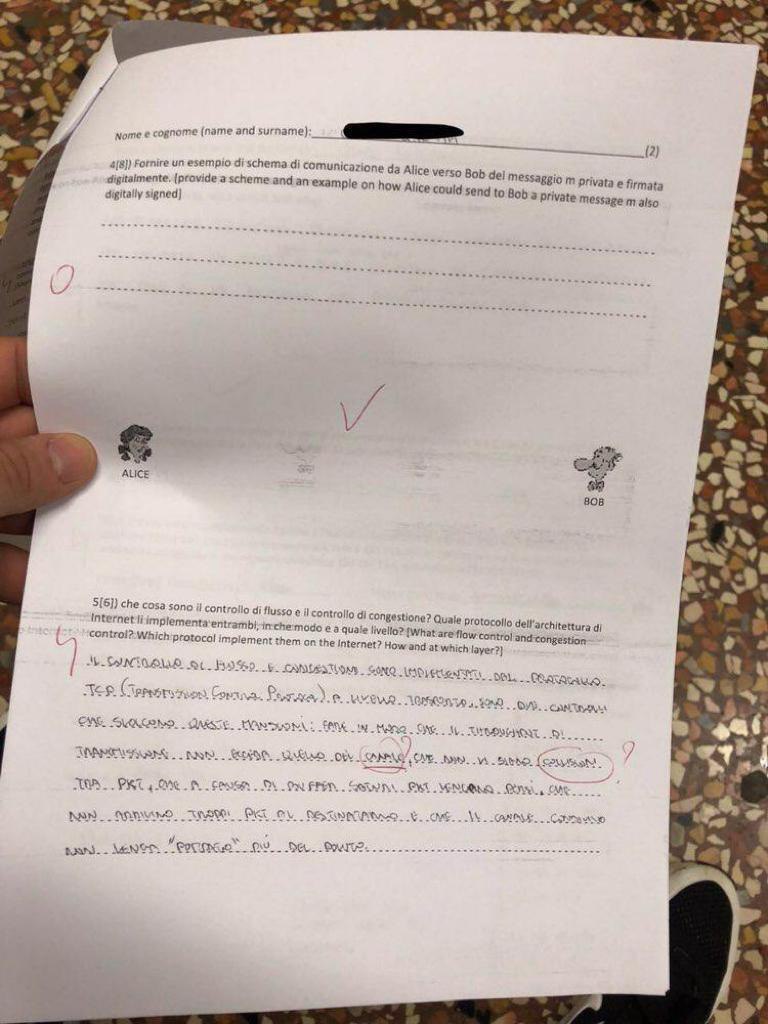 Nome e cognome (name and surname):
(2)
4[8]) Fornire un esempio di schema di comunicazione da Alice verso Bob del messaggio m privata e firmata
digitalmente. [provide a scheme and an example on how Alice could send to Bob a private message m also
digitally signed]
0
ALICE
BOB
5[6]) che cosa sono il controllo di flusso e il controllo di congestione? Quale protocollo dell'architettura di
Internet li implementa entrambi, in che modo e a quale livello? [What are flow control and congestion
control? Which protocol implement them on the Internet? How and at which layer?]
4
IL CONTROLLO DI FLUSSO E CONGESTIONE SONO IMPLEMENTATI DAL PROTOCOLLO
TCP (TRANSMISSION CONTROL PROTOCOL) A LIVELLO TRASPORTO, SONO DUE CONTROLLI
CHE SVOLGONO QUESTE MANSIONI: FARE IN MODO CHE IL THROUGHPUT DI
TRASMISSIONE NON ECCEDA QUELLO DEL CANALE, CHE NON VI SIANO COLLISIONI
? ?
TRA PKT, CHE A CAUSA DI BUFFER SATURI PKT VENGANO PERSI, CHE
NON ARRIVINO TROPPI PKT AL DESTINATARIO E CHE IL CANALE CONDIVISO
NON VENGA PIÙ DEL DOVUTO.